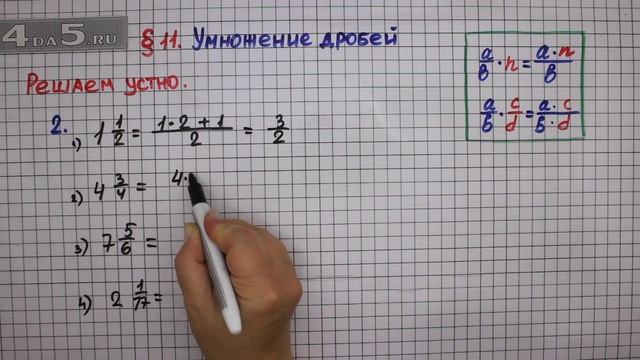 4DA5.RU
§ 11. Умножение дробей
Решаем устно.
a/b · n = a·n/b
a/b · c/d = a·c/b·d
2. 1) 1 1/2 = 1·2+1/2 = 3/2
2) 4 3/4 = 4·
3) 7 5/6 =
4) 2 1/17 =